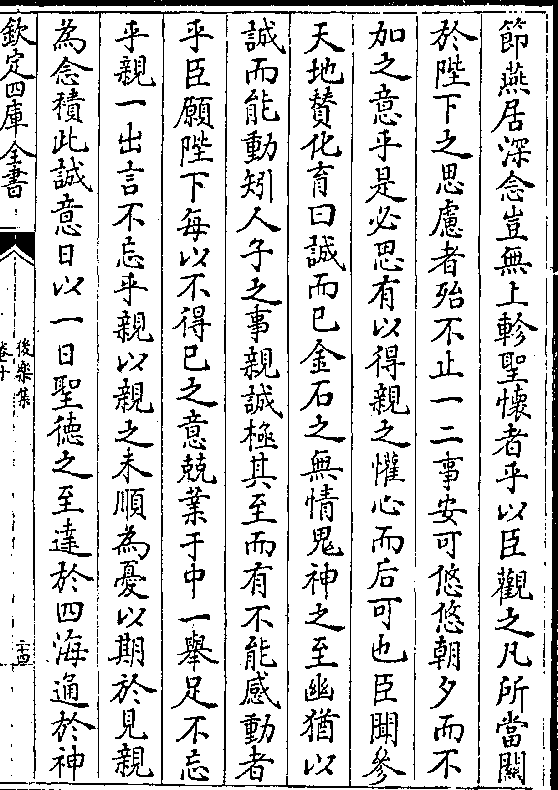 節燕居深念豈無上軫聖懷者乎以臣觀之凡所當關
於陛下之思慮者殆不止一二事安可悠悠朝夕而不
加之意乎是必思有以得親之懽心而后可也臣聞參
天地賛化育曰誠而已金石之無情鬼神之至幽猶以
誠而能動矧人子之事親誠極其至而有不能感動者
乎臣願陛下每以不得已之意兢業于中一舉足不忘
乎親一出言不忘乎親以親之未順為憂以期於見親
為念積此誠意日以一日聖德之至達於四海通於神
欽定四庫全書
後樂集
卷十